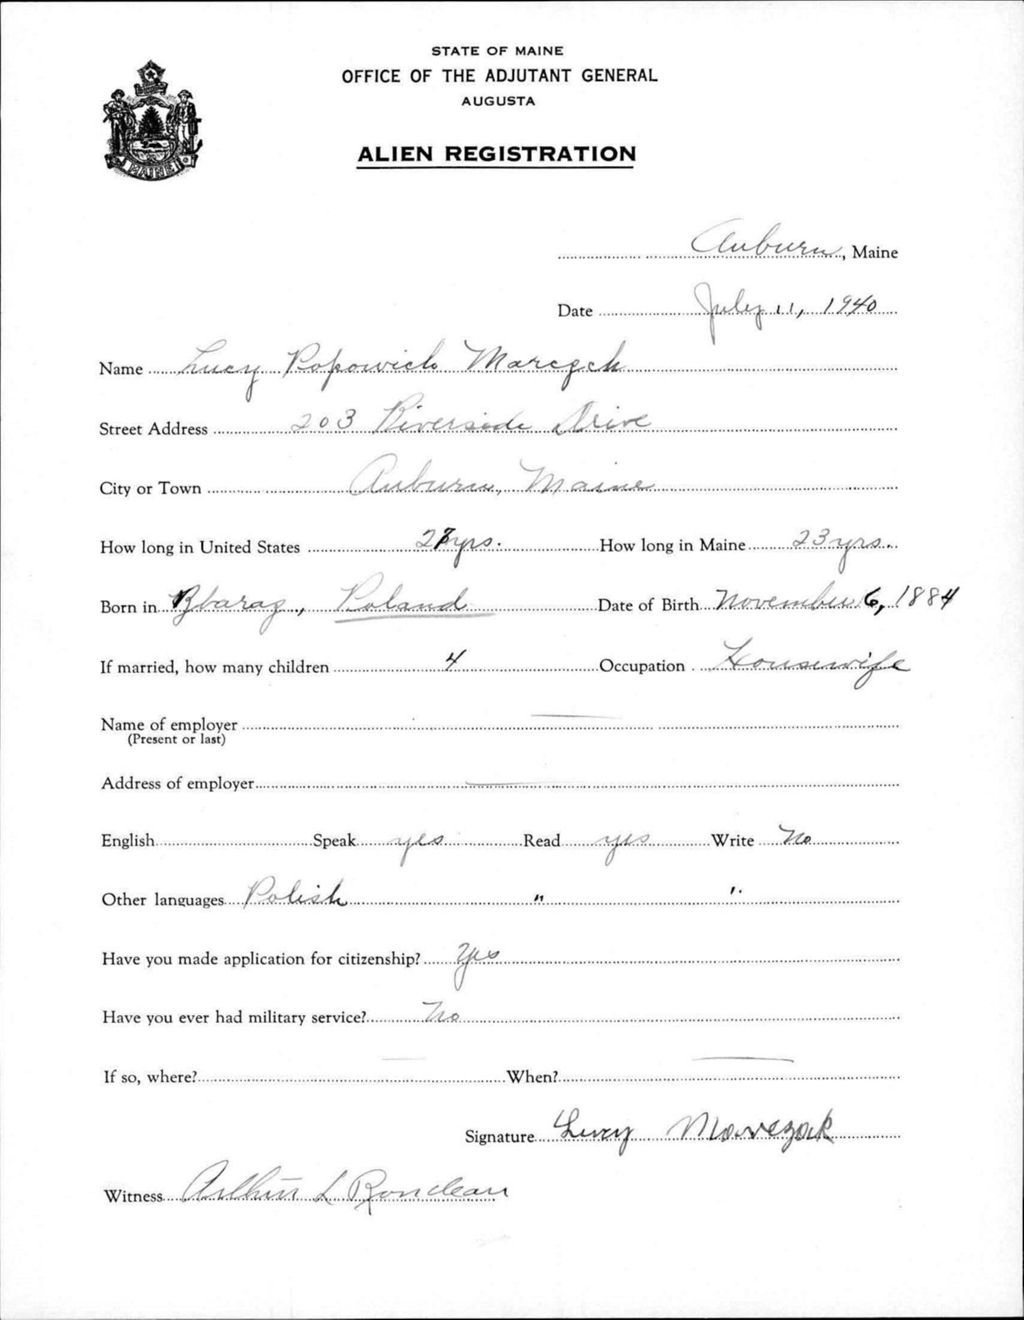 STATE OF MAINE
OFFICE OF THE ADJUTANT GENERAL
AUGUSTA
ALIEN REGISTRATION
MAINE
Auburn, Maine
Date July 11, 1940
Name Lucy Popowich Marczch
Street Address 203 Riverside Drive
City or Town Auburn, Maine
How long in United States 27 yrs. How long in Maine 23 yrs.
Born in Zbaraz, Poland Date of Birth November 6, 1884
If married, how many children 4 Occupation Housewife
Name of employer
(Present or last)
Address of employer
English Speak yes Read yes Write No
Other languages Polish " "
Have you made application for citizenship? Yes
Have you ever had military service? No
If so, where? When?
Signature Lucy Marczak
Witness Arthur L Rondeau